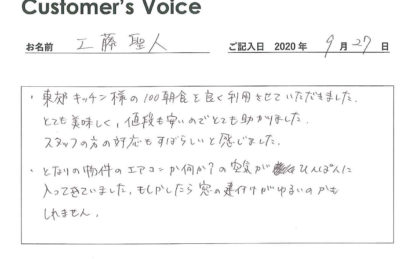 Customer's Voice
お名前 工藤聖人 ご記入日 2020年 9月27日
・東郊キッチン様の100朝食を良く利用させていただきました。
とても美味しく、値段も安いのでとても助かりました。
スタッフの方の対応もすばらしいと感じました。
・となりの物件のエアコンか何か?の空気がひんぱんに
入ってきていました。もしかしたら窓の建付けがゆるいのかも
しれません。